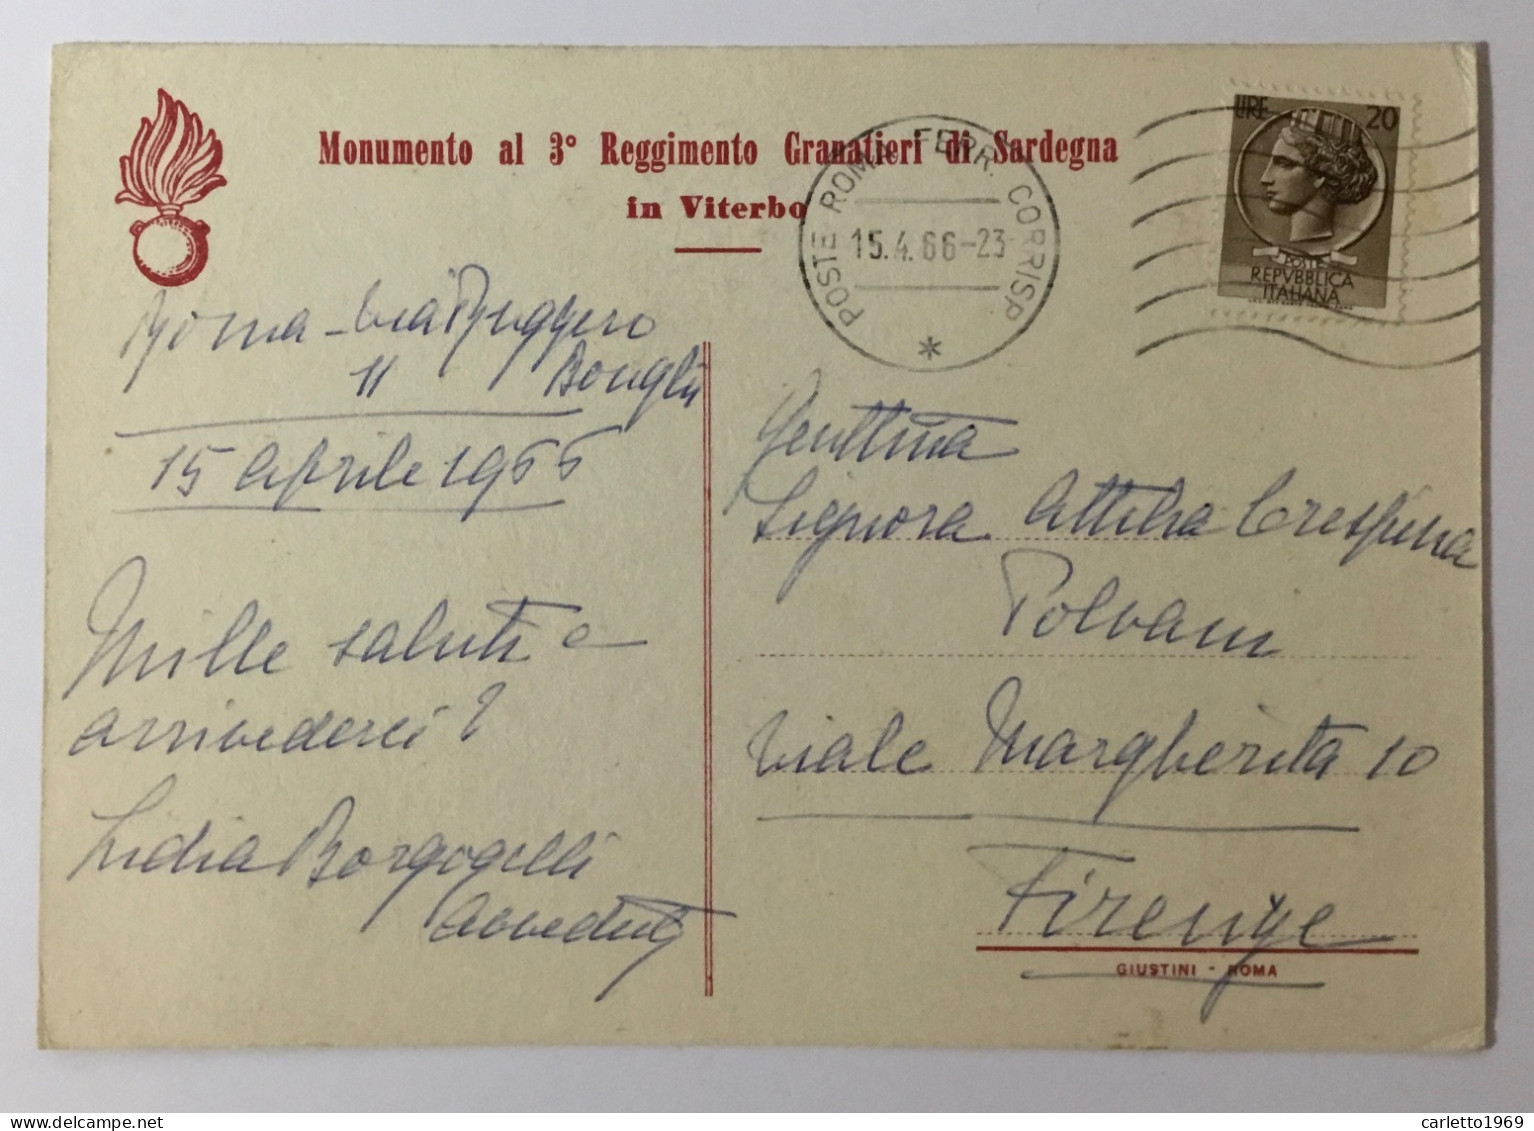 Monumento al 3° Reggimento Granatieri di Sardegna
in Viterbo
POSTE ROMA FERR. CORRISP.
15.4.66-23
LIRE 20
POSTE
REPVBBLICA
ITALIANA
Roma - Via Ruggero
11 Bonghi
15 Aprile 1966
Mille saluti e
arrivederci!
Lidia Borgogelli
Avveduti
Gentilma
Signora Attilia Crespina
Polvani
Viale Margherita 10
Firenze
GIUSTINI - ROMA
carletto1969